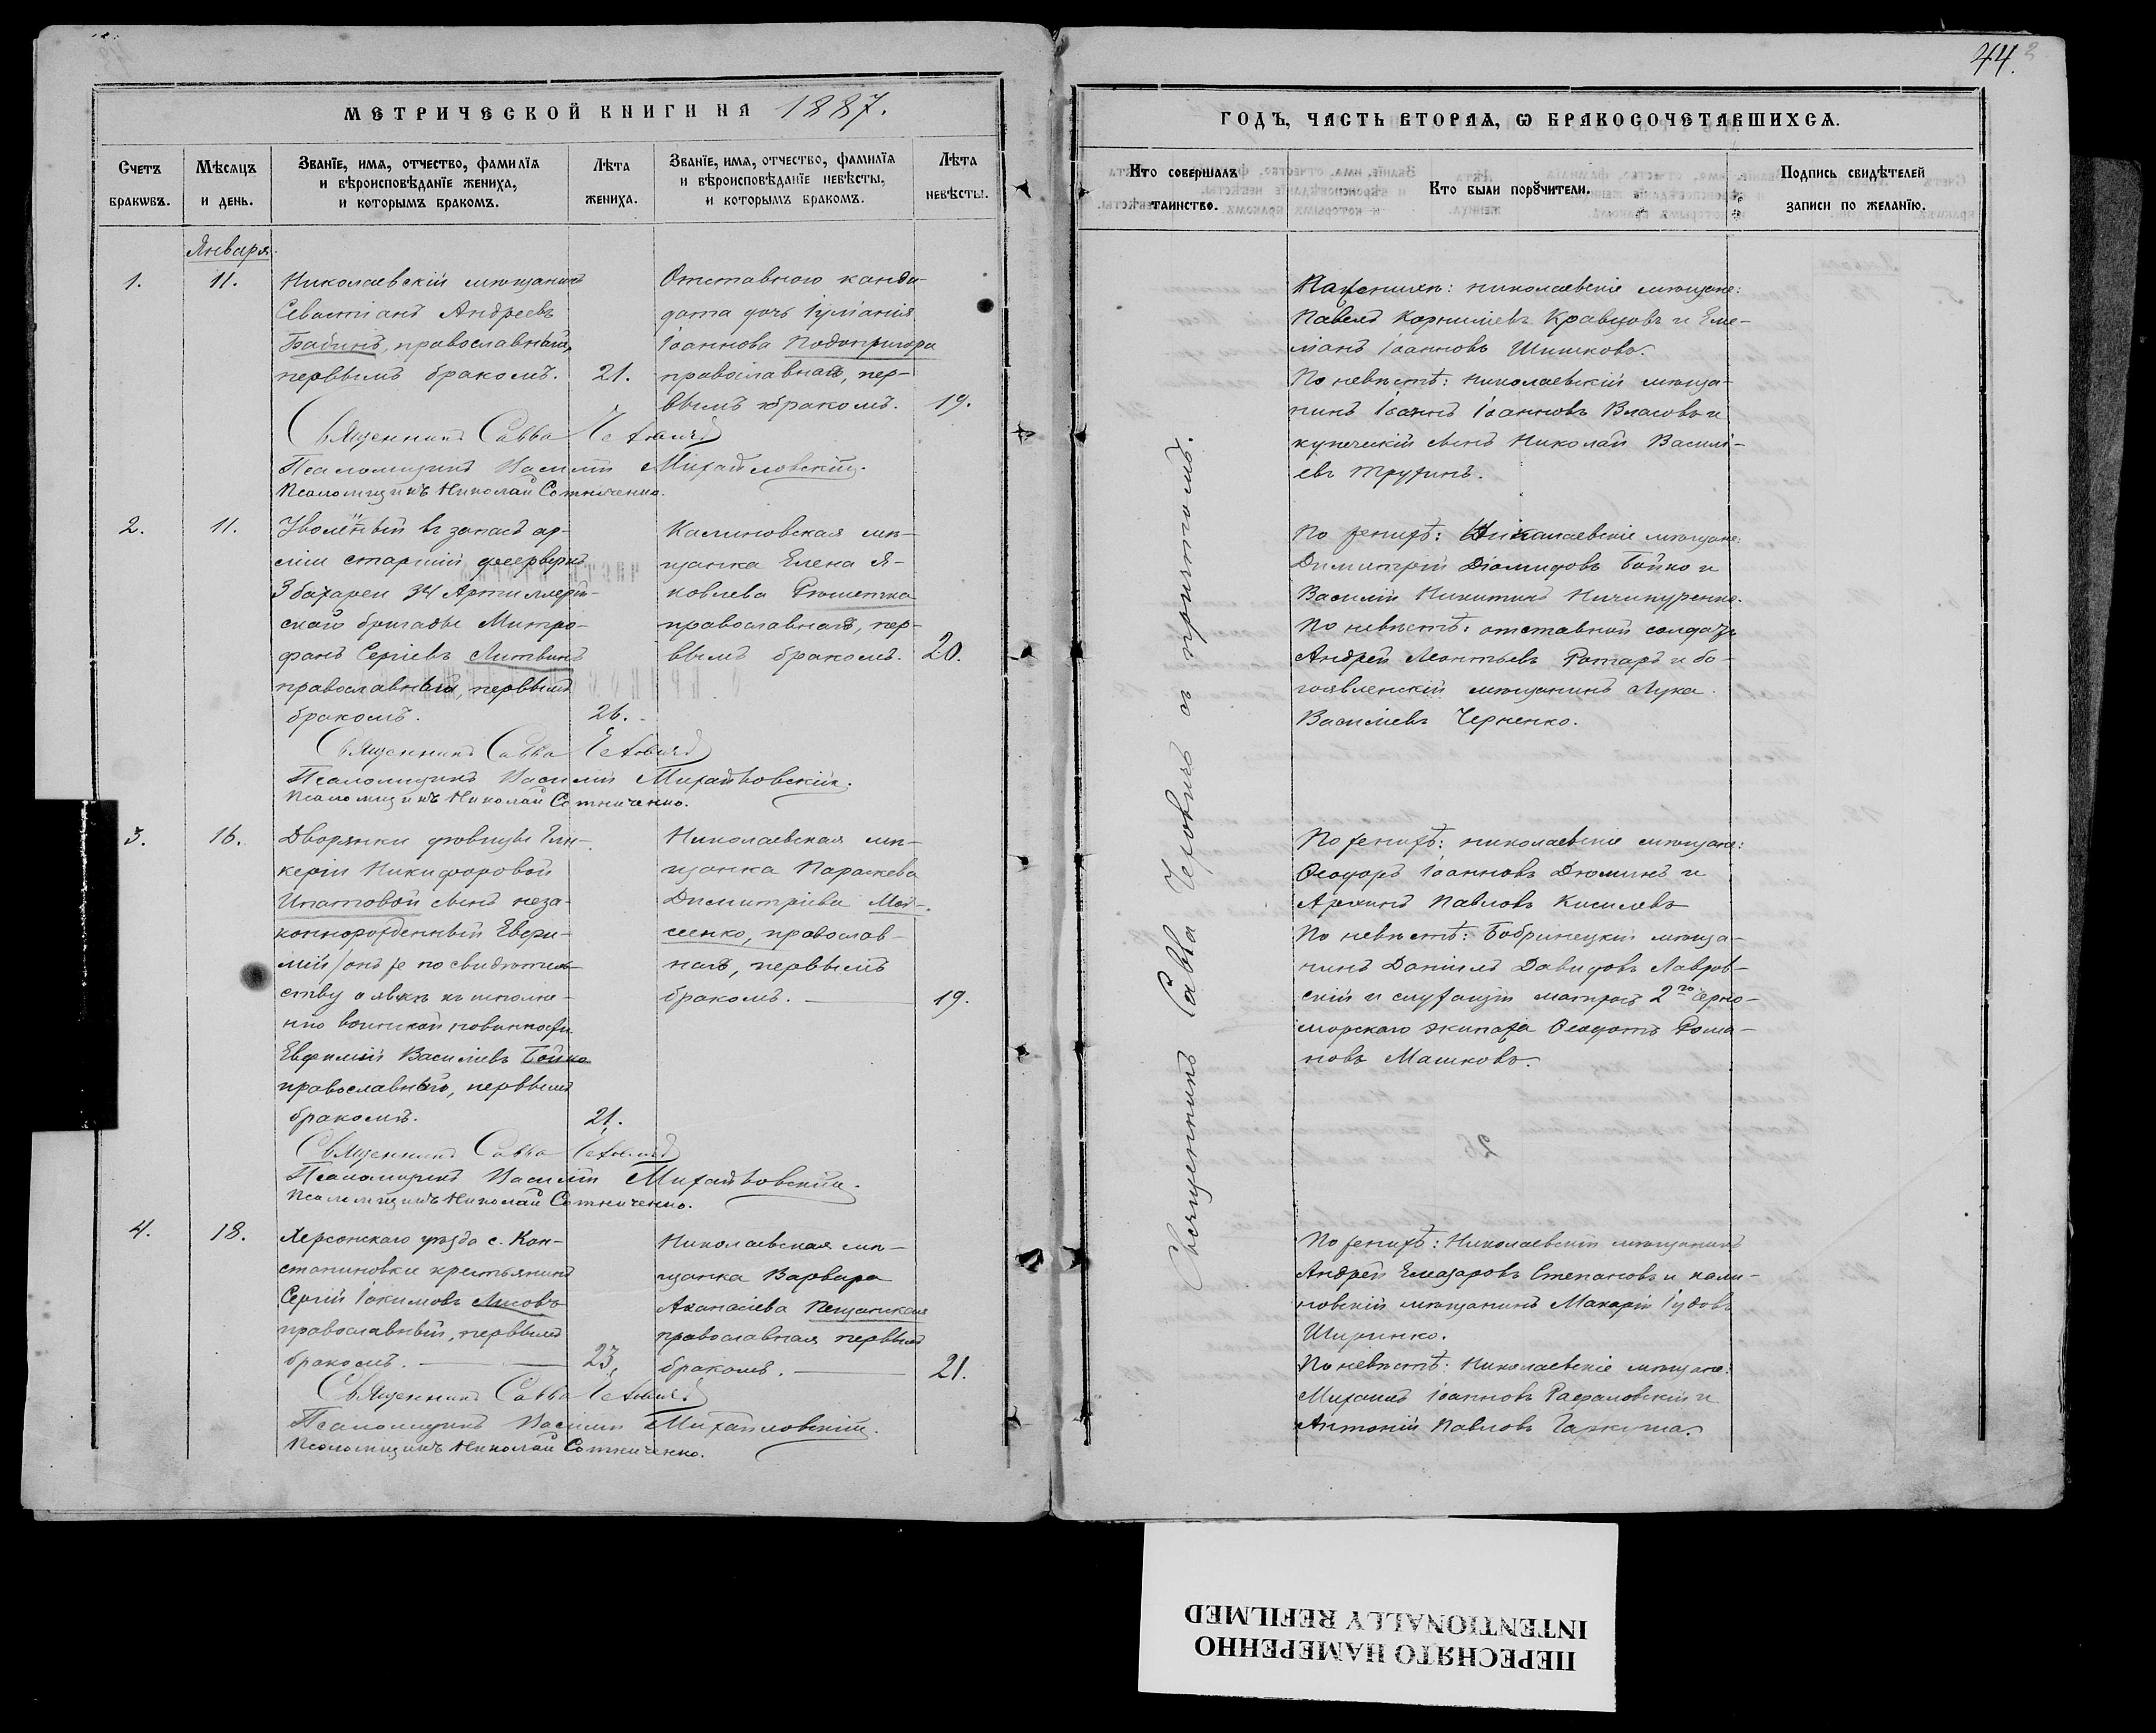 44.
МЕТРИЧЕСКОЙ КНИГИ НА 1887.
Счетъ браковъ.
Мѣсяцъ и день.
Званїе, имя, отчество, фамилїя
и вѣроисповѣданїе жениха,
и которымъ бракомъ.
Лѣта жениха.
Званїе, имя, отчество, фамилїя
и вѣроисповѣданїе невѣсты,
и которымъ бракомъ.
Лѣта невѣсты.
Января.
1.
11.
Николаевскій мѣщанинъ
Севастіанъ Андреевъ
Бабинъ, православный,
первымъ бракомъ.
21.
Отставного канди-
дата дочь Іуліанія
Іоаннова Подопригора
православная, пер-
вымъ бракомъ.
19.
Священникъ Савва Чехович
Псаломщикъ Василій Михайловскій.
Псаломщикъ Николай Сотниченко.
2.
11.
Уволенный въ запасъ ар-
міи старшій феерверкъ
3 батареи 34 Артиллерій-
ской бригады Митро-
фанъ Сергіевъ Литвинъ
православный, первымъ
бракомъ.
26.
Калиновская мѣ-
щанка Елена Я-
ковлева
православная, пер-
вымъ бракомъ.
20.
Священникъ Савва Чехович
Псаломщикъ Василій Михайловскій.
Псаломщикъ Николай Сотниченко.
3.
16.
Дворянки дѣвицы Гли-
керіи Никифоровой
Ипатовой сынъ неза-
коннорожденный Евфи-
мій /онъ же по свидѣтель-
ству о явкѣ къ исполне-
нію воинской повинности
Евфимій Василіевъ Бойко
православный, первымъ
бракомъ.
21.
Николаевская мѣ-
щанка Параскева
Димитріева Мой-
сеенко, православ-
ная, первымъ
бракомъ.
19.
Священникъ Савва Чехович
Псаломщикъ Василій Михайловскій.
Псаломщикъ Николай Сотниченко.
4.
18.
Херсонскаго уѣзда с. Кон-
стантиновки крестьянинъ
Сергій Іакимовъ Лисовъ
православный, первымъ
бракомъ.
23.
Николаевская мѣ-
щанка Варвара
Аѳанасіева Пещанская
православная первымъ
бракомъ.
21.
Священникъ Савва Чехович
Псаломщикъ Василій Михайловскій.
Псаломщикъ Николай Сотниченко.
ГОДЪ, ЧАСТЬ ВТОРАЯ, Ѡ БРАКОСОЧЕТАВШИХСЯ.
Кто совершалъ таинство.
Кто были порѹчители.
Подпись свидѣтелей
записи по желанїю.
Священникъ Савва Чеховичъ съ причтомъ.
николаевскіе мѣщане:
Павелъ Корниліевъ Кравцовъ и Еме-
ліанъ Іоанновъ Шишковъ.
По невѣстѣ: николаевскій мѣща-
нинъ Іоаннъ Іоанновъ Власовъ и
купеческій сынъ Николай Василі-
евъ Трухинъ.
По женихѣ: Николаевскіе мѣщане:
Димитрій Діомидовъ Бойко и
Василій Никитинъ Ничипуренко.
По невѣстѣ: отставной солдатъ
Андрей Леонтьевъ Ротаръ и бо-
гоявленскій мѣщанинъ Лука
Василіевъ Черненко.
По женихѣ: николаевскіе мѣщане:
Ѳеодоръ Іоанновъ Дюминъ и
Архипъ Павловъ Киселевъ
По невѣстѣ: Бобринецкій мѣща-
нинъ Даніилъ Давидовъ Лавров-
скій и служащій матросъ 2го Черно-
морскаго экипажа Ѳеодотъ Рома-
новъ Машковъ.
По женихѣ: Николаевскій мѣщанинъ
Андрей Елеазаровъ Степановъ и кали-
новскій мѣщанинъ Макарій Іудовъ
Ширинко.
По невѣстѣ: Николаевскіе мѣщане:
Михаилъ Іоанновъ Рафаловскій и
Антоній Павловъ Гаркуша.
ПЕРЕСНЯТО НАМЕРЕННО
INTENTIONALLY REFILMED